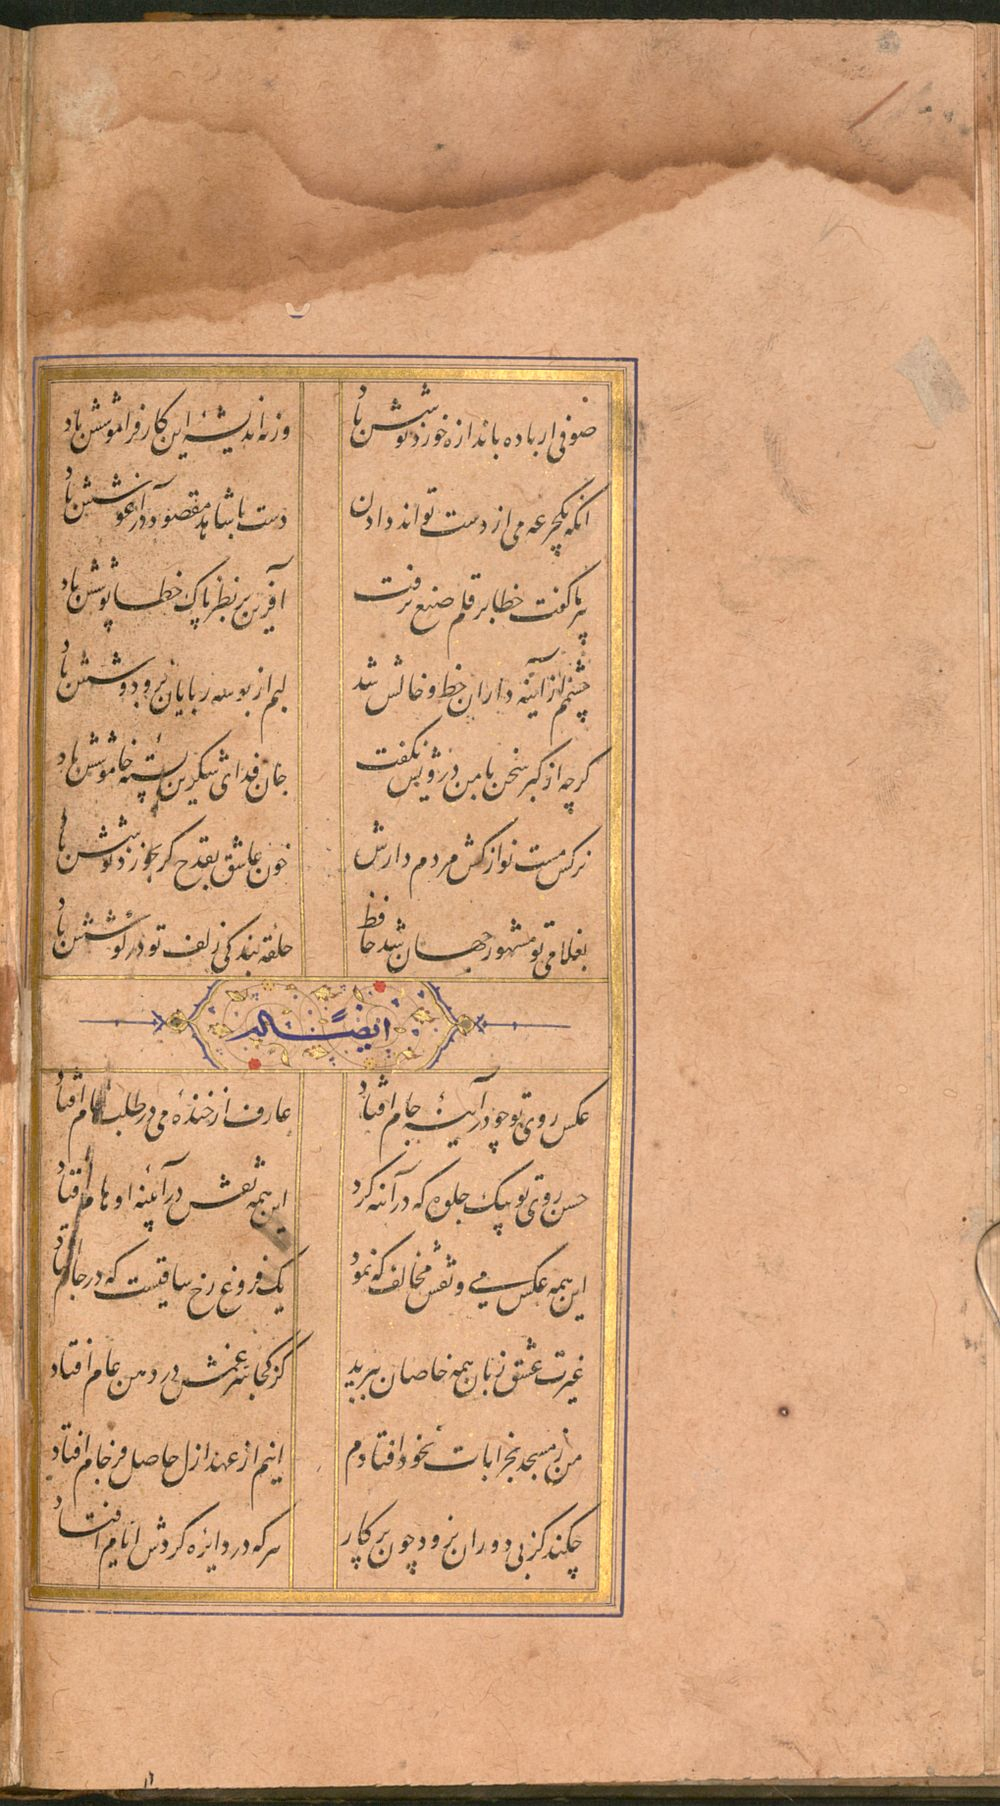 صوفی ار باده باندازه خورد نوشش باد ورنه اندیشهٔ این کار فراموشش باد
انکه یکجرعه می از دست تواند دادن دست با شاهد مقصود در آغوشش باد
پیر ما گفت خطا بر قلم صنع نرفت آفرین بر نظر پاک خطا پوشش باد
چشمم از آینه داران خط و خالش شد لبم از بوسه ربایان برو دوشش باد
کرچه از کبر سخن با من درویش نکفت جان فدای شکرین پستهٔ خاموشش باد
نرکس مست نوازکش مردم دارش خون عاشق بقدح کر بخورد نوشش باد
بغلامی تو مشهور جهان شد حافظ حلقه بندکی زلف تو در کوشش باد
ایضاً له
عکس روی تو چو در آینهٔ جام افتاد عارف از خندهٔ می در طلب جام افتاد
حسن روی تو بیک جلوه که در آینه کرد این همه نقش در آینه اوهام افتاد
این همه عکس می و نقش مخالف که نمود یک فروغ رخ ساقیست که در جام افتاد
غیرت عشق زبان همه خاصان ببرید کز کجا سر غمش در دهن عام افتاد
من ز مسجد بخرابات نخود افتادم اینم از عهد ازل حاصل فرجام افتاد
چکند کز پی دوران نرود چون پرکار هر که در دایره کردش ایام افتاد